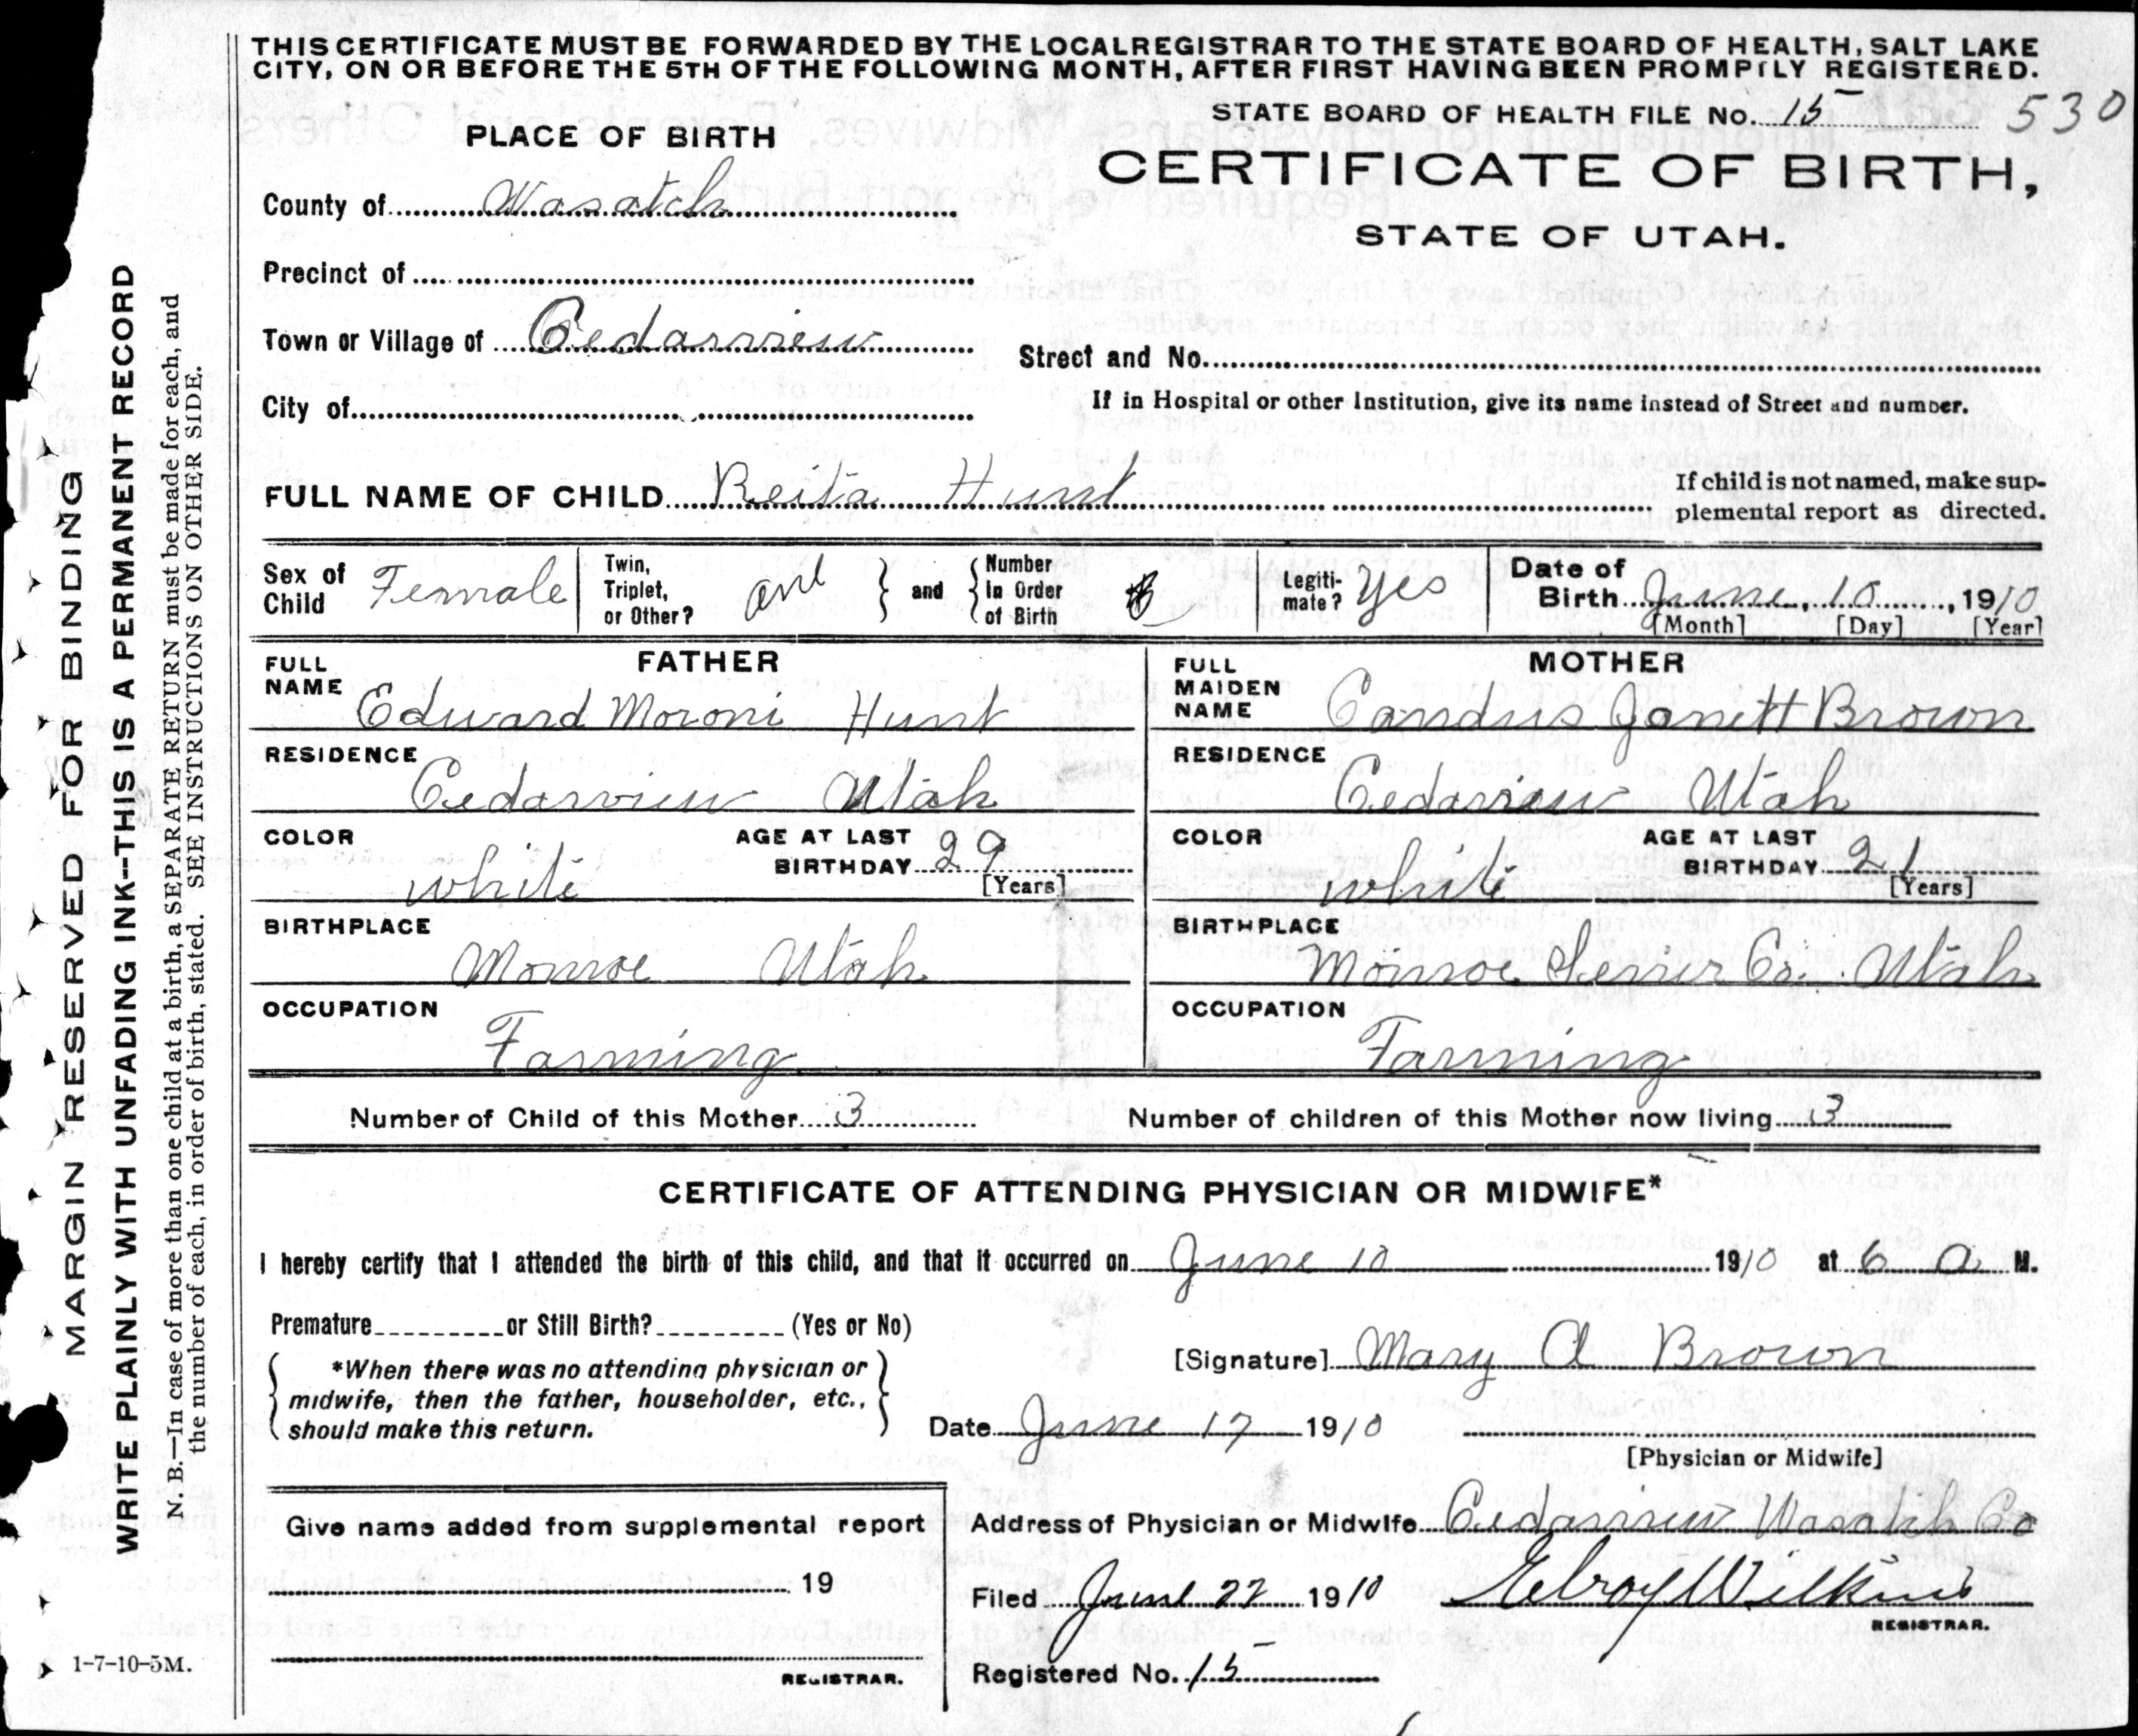 THIS CERTIFICATE MUST BE FORWARDED BY THE LOCAL REGISTRAR TO THE STATE BOARD OF HEALTH, SALT LAKE
CITY, ON OR BEFORE THE 5TH OF THE FOLLOWING MONTH, AFTER FIRST HAVING BEEN PROMPTLY REGISTERED.
STATE BOARD OF HEALTH FILE No. 15 530
PLACE OF BIRTH
CERTIFICATE OF BIRTH,
STATE OF UTAH.
County of Wasatch
Precinct of
Town or Village of Cedarview
Street and No.
City of
If in Hospital or other Institution, give its name instead of Street and number.
FULL NAME OF CHILD Reita Hunt
If child is not named, make sup-
plemental report as directed.
Sex of Child Female
Twin, Triplet, or Other? one } and { Number In Order of Birth
Legiti-mate? yes
Date of Birth June, 10, 1910
[Month] [Day] [Year]
FATHER
FULL NAME Edward Moroni Hunt
RESIDENCE Cedarview Utah
COLOR white AGE AT LAST BIRTHDAY 29 [Years]
BIRTHPLACE Monroe Utah
OCCUPATION Farming
MOTHER
FULL MAIDEN NAME Candus Janett Brown
RESIDENCE Cedarview Utah
COLOR white AGE AT LAST BIRTHDAY 21 [Years]
BIRTHPLACE Monroe Sevier Co. Utah
OCCUPATION Farming
Number of Child of this Mother 3 Number of children of this Mother now living 3
CERTIFICATE OF ATTENDING PHYSICIAN OR MIDWIFE*
I hereby certify that I attended the birth of this child, and that it occurred on June 10 1910 at 6 a M.
Premature or Still Birth? (Yes or No)
*When there was no attending physician or
midwife, then the father, householder, etc.,
should make this return.
[Signature] Mary A Brown
Date June 17 1910
[Physician or Midwife]
Give name added from supplemental report
19
REGISTRAR.
Address of Physician or Midwife Cedarview Wasatch Co
Filed June 22 1910 Elroy Wilkins
REGISTRAR.
Registered No. 15
MARGIN RESERVED FOR BINDING
WRITE PLAINLY WITH UNFADING INK--THIS IS A PERMANENT RECORD
N. B.—In case of more than one child at a birth, a SEPARATE RETURN must be made for each, and
the number of each, in order of birth, stated. SEE INSTRUCTIONS ON OTHER SIDE.
1-7-10-5M.